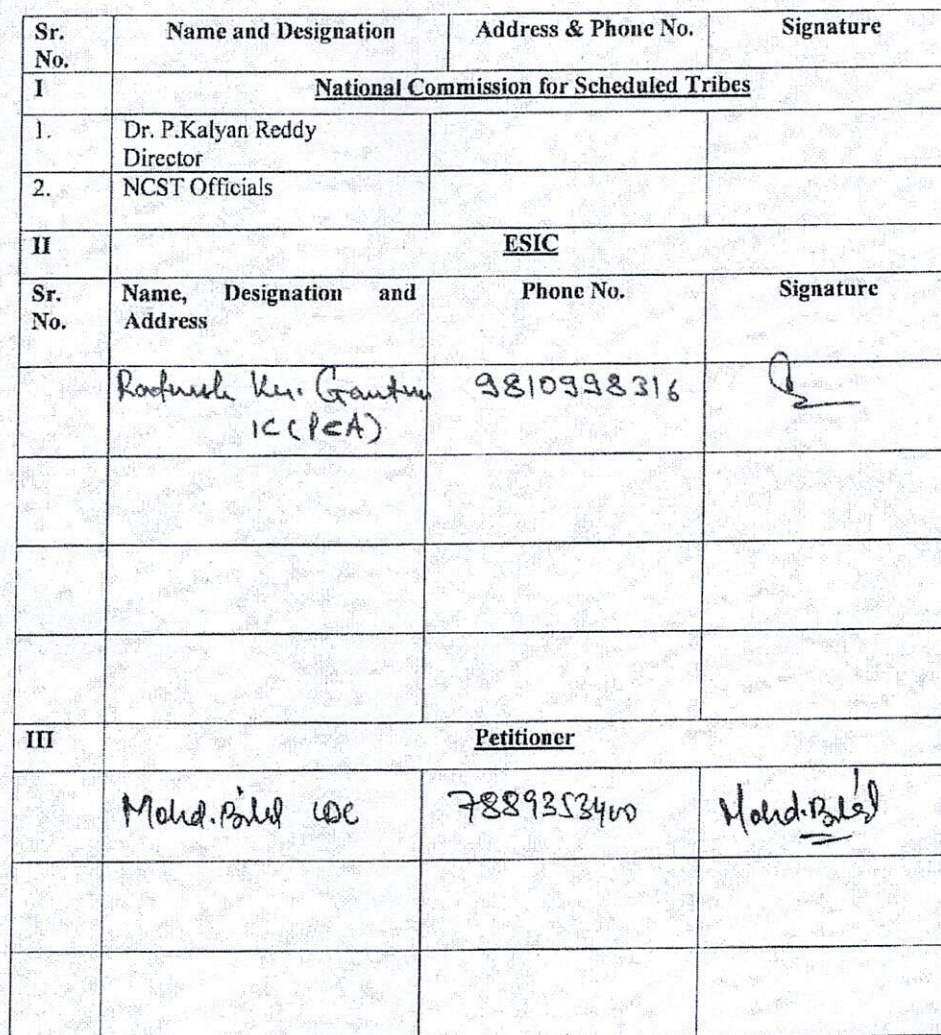 Sr. No. Name and Designation Address & Phone No. Signature
I National Commission for Scheduled Tribes
1. Dr. P.Kalyan Reddy
Director
2. NCST Officials
II ESIC
Sr. No. Name, Designation and Address Phone No. Signature
9810998316
III Petitioner
Mohd. Bilal 7889353400 Mohd. Bilal